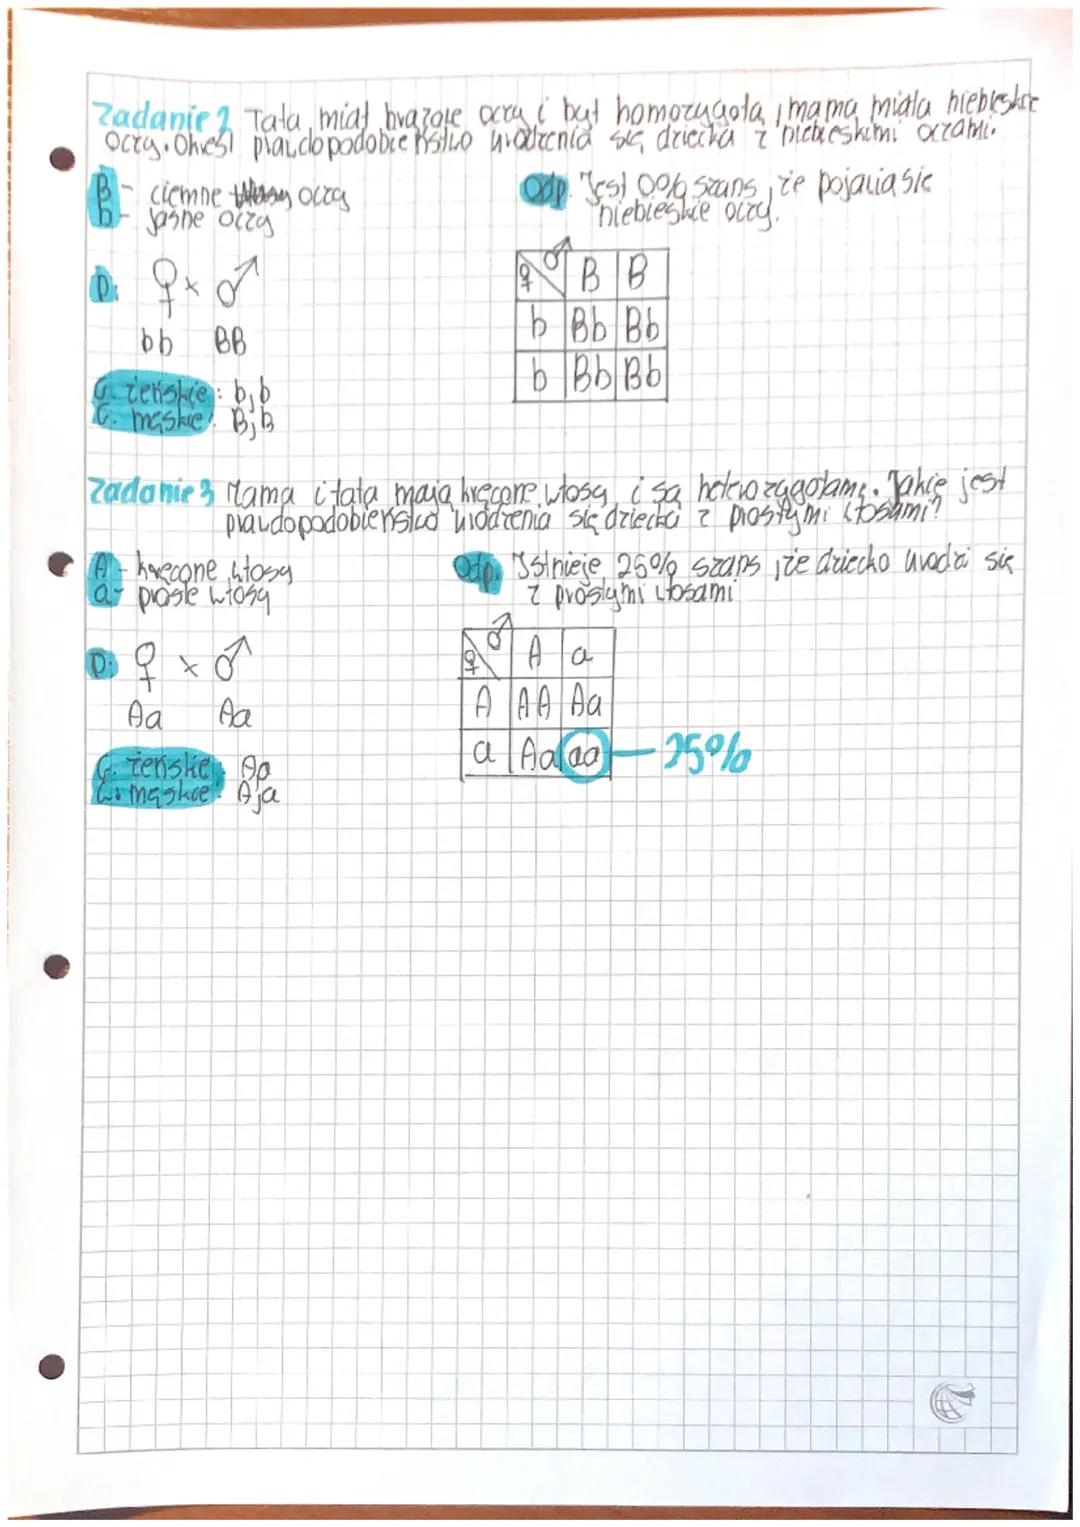 Zadanie 2 Tata miał brązowe oczy i był homozygotą, mama miała niebieskie
oczy. Określ prawdopodobieństwo urodzenia się dziecka z niebieskimi oczami.
B - ciemne oczy
b - jasne oczy
Odp. Jest 0% szans, że pojawia się
niebieskie oczy.
P: ♀ × ♂
bb BB
G. żeńskie: b, b
G. męskie: B, B
♀ ♂ B B
b Bb Bb
b Bb Bb
Zadanie 3 Mama i tata mają kręcone włosy i są heterozygotami. Jakie jest
prawdopodobieństwo urodzenia się dziecka z prostymi włosami?
A - kręcone włosy
a - proste włosy
Odp. Istnieje 25% szans, że dziecko urodzi się
z prostymi włosami
P: ♀ × ♂
Aa Aa
G. żeńskie: A,a
G. męskie: A,a
♀ ♂ A a
A AA Aa
a Aa aa — 25%